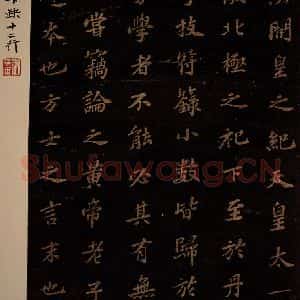 開皇之紀天皇太一
北極之祀下至於丹
技符籙小數皆歸於
學者不能必其有無
嘗竊論之黃帝老子
本也方士之言末也
十二行
Shufawang.CN